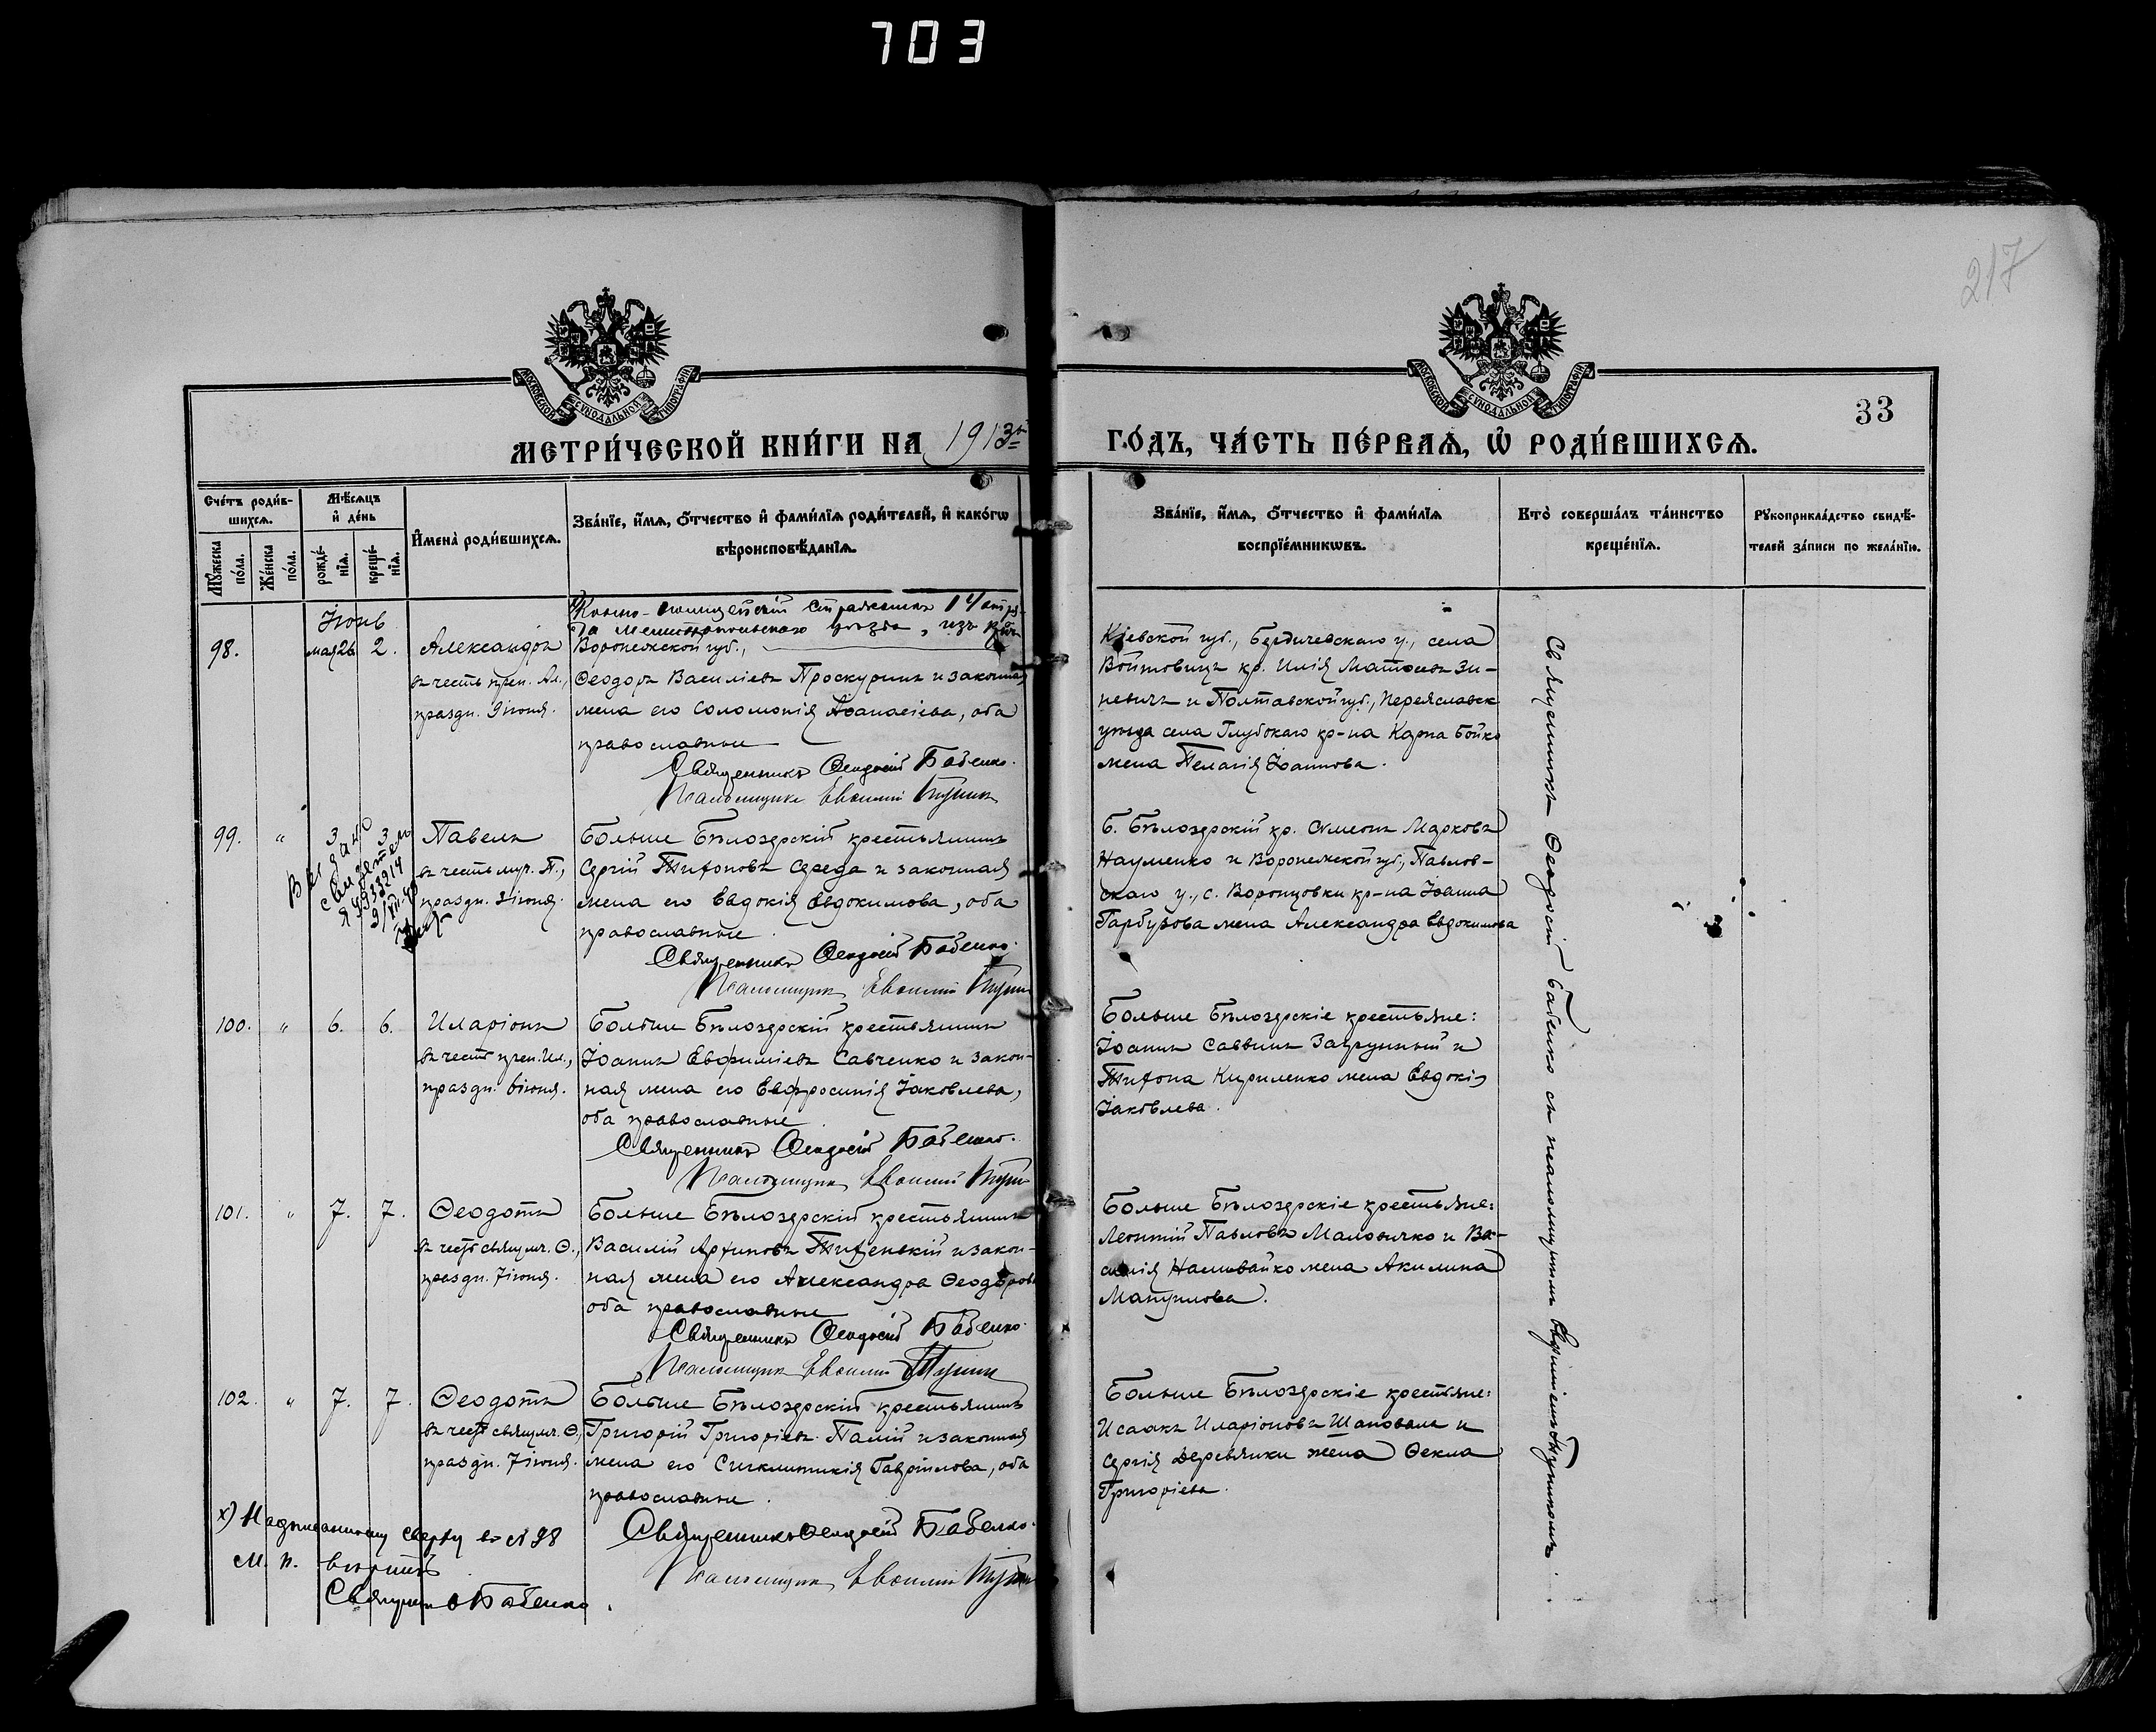 703
217
МОСКОВСКОЙ СѴНОДАЛЬНОЙ ТИПОГРАФІИ
МОСКОВСКОЙ СѴНОДАЛЬНОЙ ТИПОГРАФІИ
33
МЕТРИ́ЧЕСКОЙ КНИ́ГИ НА 1913й
ГО́ДЪ, ЧА́СТЬ ПЕ́РВАѦ, Ѡ҆ РОДИ́ВШИХСѦ.
Сче́тъ роди́в-
шихсѧ.
Мѣ́сѧцъ
и҆ де́нь
Мꙋ́жеска
по́ла.
Же́нска
по́ла.
рожде́-
нїѧ.
креще́-
нїѧ.
И҆мена̀ роди́вшихсѧ.
Зва́нїе, и҆́мѧ, ѻ҆́тчество и҆ фами́лїѧ роди́телей, и҆ како́гѡ
вѣроисповѣ́данїѧ.
Зва́нїе, и҆́мѧ, ѻ҆́тчество и҆ фами́лїѧ
воспрїе́мникѡвъ.
Кто̀ соверша́лъ та́инство
креще́нїѧ.
Рꙋкоприкла́дство свидѣ́-
телей за́писи по жела́нїю.
Іюнь
98.
мая 26
2.
Александръ
въ честь преп. Ал.,
праздн. 9 іюня.
Конно-полицейскій стражникъ 14 отря-
да Мелитопольскаго уѣзда, изъ
Воронежской губ.,
Ѳеодоръ Василіевъ Проскуринъ и законная
жена его Соломонія Аѳанасіева, оба
православные
Священникъ Ѳеодосій Бабенко.
Псаломщикъ Евѳимій
Кіевской губ., Бердичевскаго у., села
Войтовицъ кр. Илія Матѳеевъ Зи-
невичъ и Полтавской губ., Переяславск
уѣзда села Глубокаго кр-на Карпа Бойко
жена Пелагія Іоаннова.
Священникъ Ѳеодосій Бабенко съ псаломщикомъ
99.
"
3
3
Выдано
свидетел
ЯЧ 333214
9/VII-40
Павелъ
въ честь муч. П.,
праздн. 3 іюня.
Больше Бѣлозерскій крестьянинъ
Сергій Тихоновъ Середа и законная
жена его Евдокія Евдокимова, оба
православные.
Священникъ Ѳеодосій Бабенко.
Псаломщикъ Евѳимій
Б. Бѣлозерскій кр. Симеонъ Марковъ
Науменко и Воронежской губ., Павлов-
скаго у., с. Воронцовки кр-на Іоанна
Гарбузова жена Александра Евдокимова
100.
"
6.
6.
Иларіонъ
въ честь преп. Ил.,
праздн. 6 іюня.
Больше Бѣлозерскій крестьянинъ
Іоаннъ Евфиміевъ Савченко и закон-
ная жена его Евфросинія Іаковлева,
оба православные.
Священникъ Ѳеодосій Бабенко.
Псаломщикъ Евѳимій
Больше Бѣлозерскіе крестьяне:
Іоаннъ Саввинъ и
Тихона Кириленко жена Евдокія
Іаковлева.
101.
"
7.
7.
Ѳеодотъ
въ честь свящмч. Ѳ.,
праздн. 7 іюня.
Больше Бѣлозерскій крестьянинъ
Василій Архиповъ Тихенькій и закон-
ная жена его Александра Ѳеодорова
оба православные
Священникъ Ѳеодосій Бабенко.
Псаломщикъ Евѳимій
Больше Бѣлозерскіе крестьяне:
Леонтій Павловъ Маловичко и Ва-
силія Наливайко жена Акилина
Мануилова.
102.
"
7.
7.
Ѳеодотъ
въ честь свящмч. Ѳ.,
праздн. 7 іюня.
Больше Бѣлозерскій крестьянинъ
Григорій Григоріевъ Палій и законная
жена его Сигклитикія Гавріилова, оба
православные.
Священникъ Ѳеодосій Бабенко.
Псаломщикъ Евѳимій
Больше Бѣлозерскіе крестьяне:
Исаакъ Иларіоновъ Шаповалъ и
Сергія Деревянки жена Ѳекла
Григоріева.
х) Надписанному сверху въ № 98
м. п. вѣрить
Священ Ѳ Бабенко.